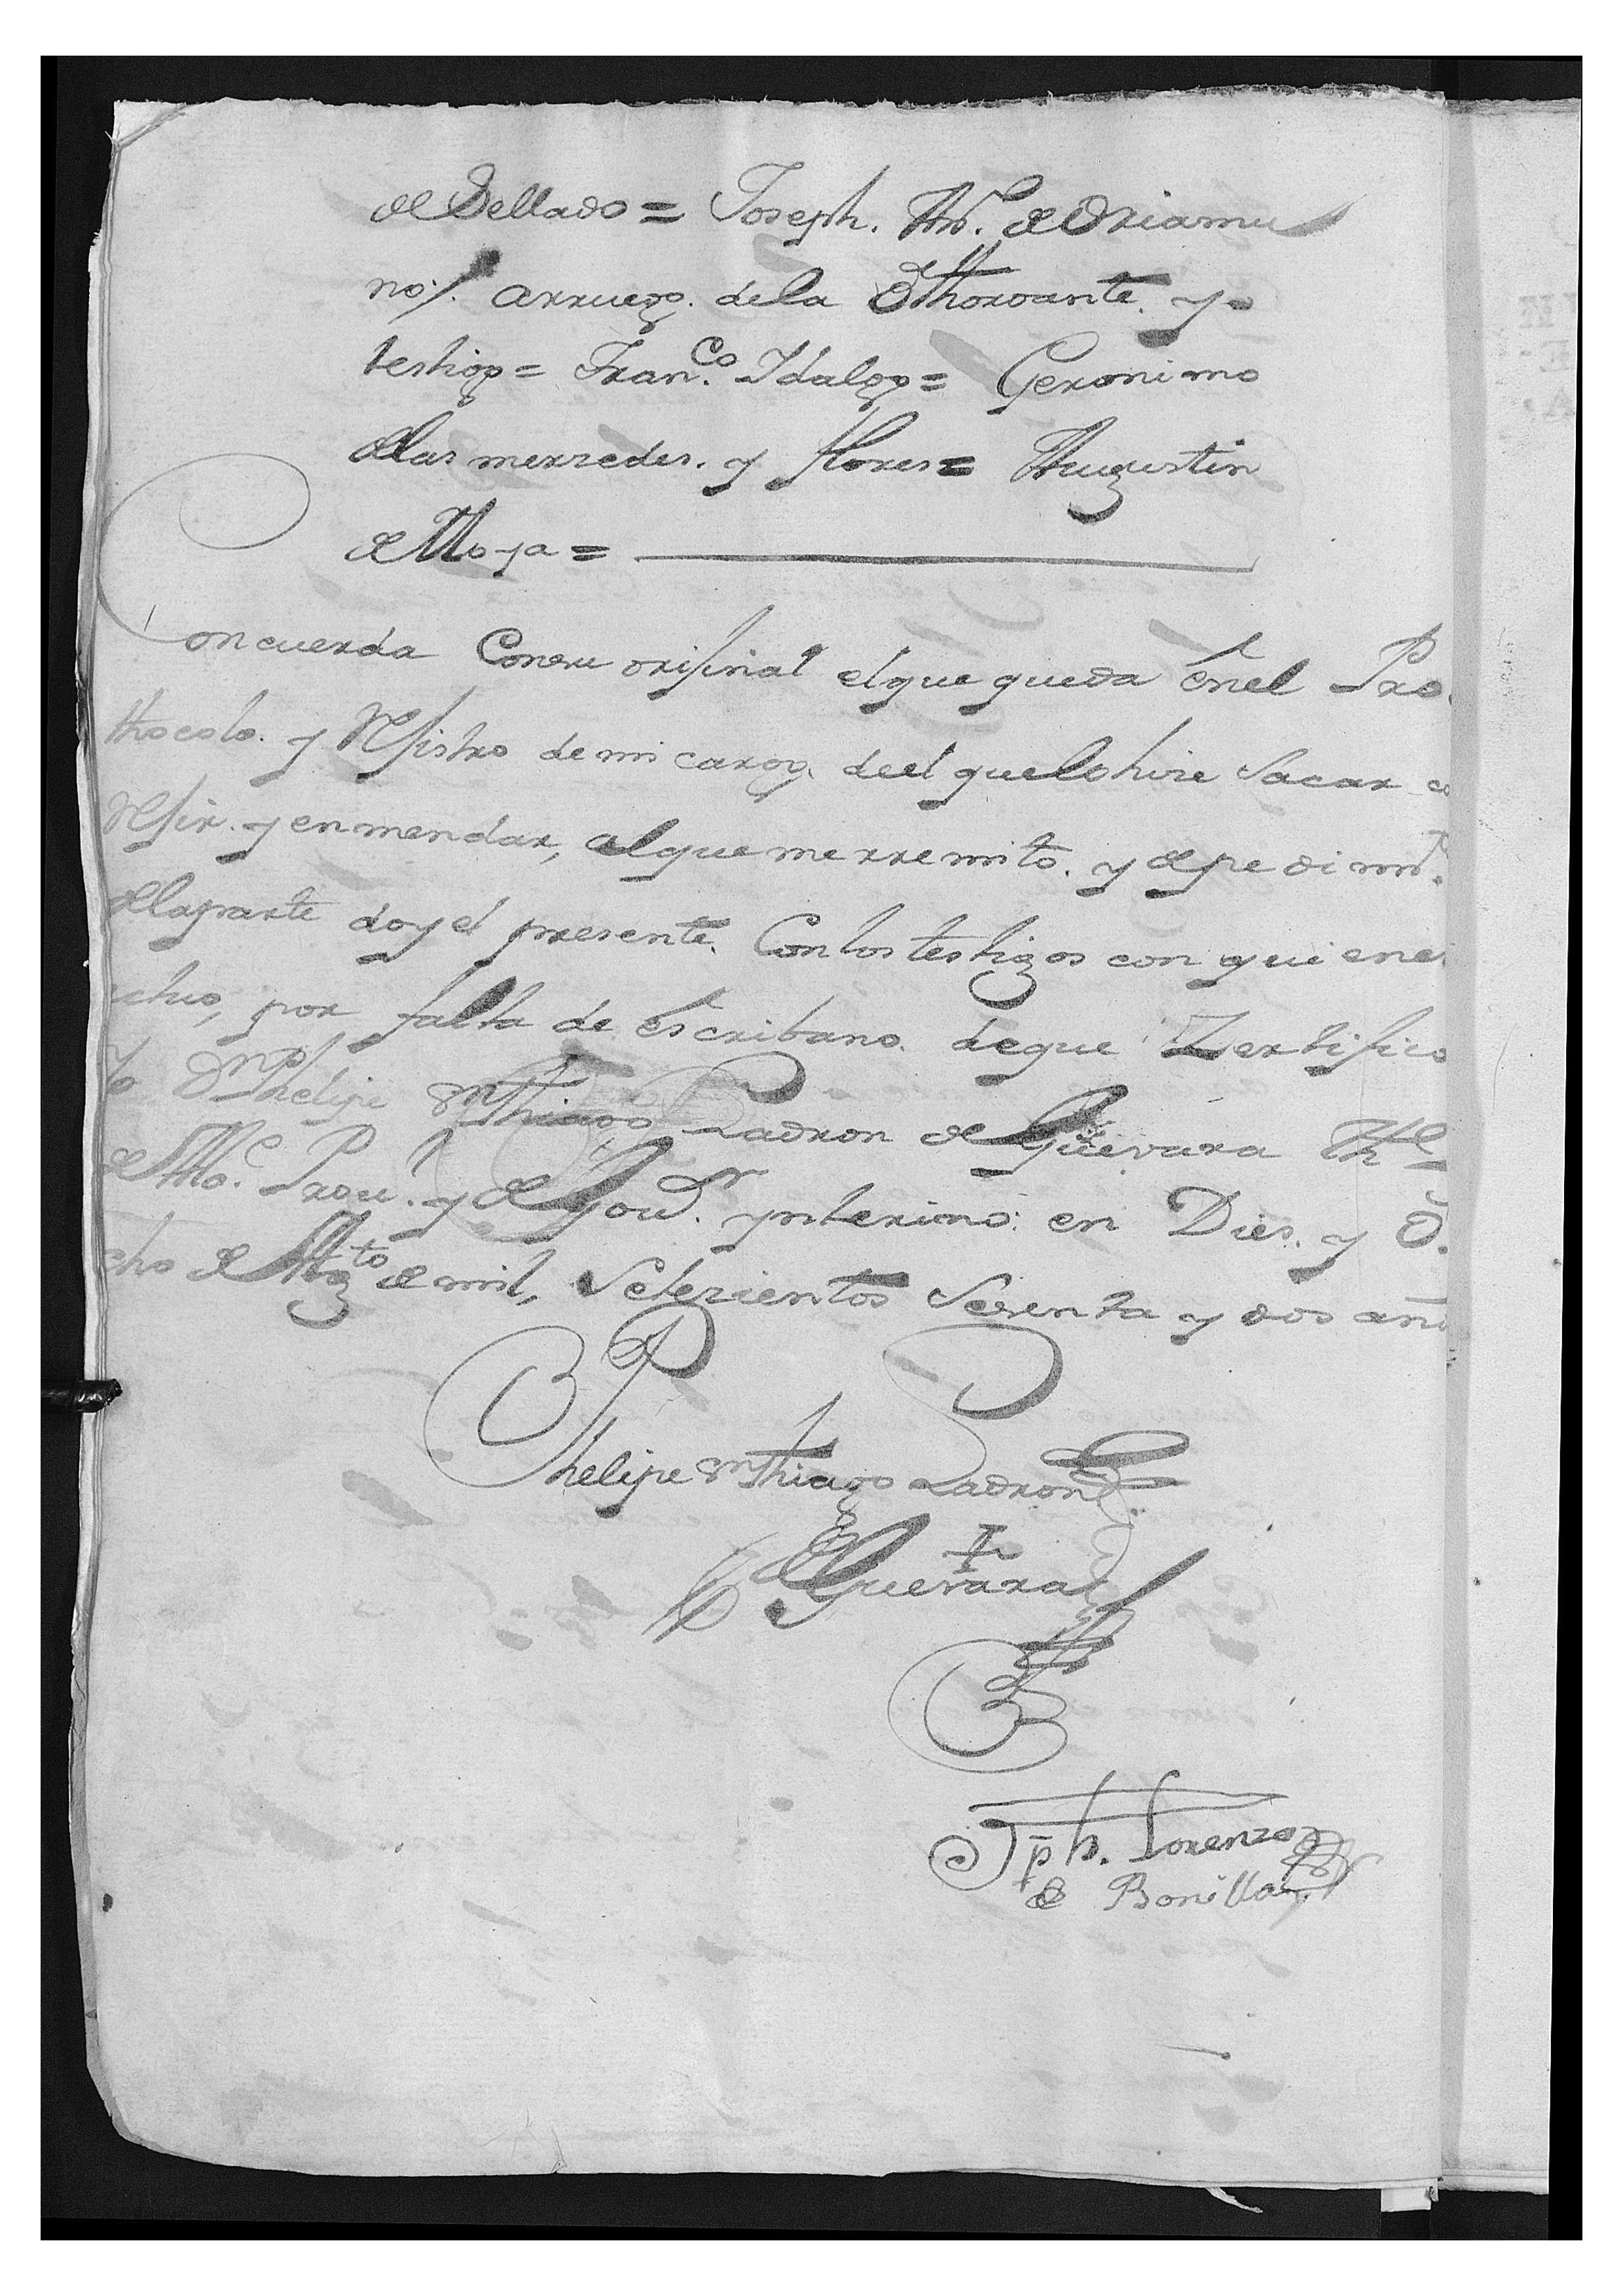 de Dellado = Joseph. Anᵗ. de Oriamu
no/. arruego. dela Othorgante. y=
testigo = Franᶜᵒ. Ydalgo = Geronimo
de las mersedes. y flores = Augustin
de Moya =
Concuerda Consu orijinal elque queda enel Pro
thocolo. y Rejistro de mi cargo. deel quelo hise Sacar co
Rejir. y enmendar, alque merremito. y de pedimᵗᵒ.
de la parte doy el presente. Con los testigos con quiene
actuo, por falta de escribano. deque Zertifico
Yo Dⁿ Phelipe Sⁿthiago Ladron de Guevara Thᵉ
de Alᵉ. Prouˡ. y de Gouʳ. ynterino: en Dies. y O.
cho de Agᵗᵒ de mil, Setezientos Sesenta y dos año
Phelipe Sⁿthiago Ladron de
Guevara
Jph. Lorenzo
de Bonilla